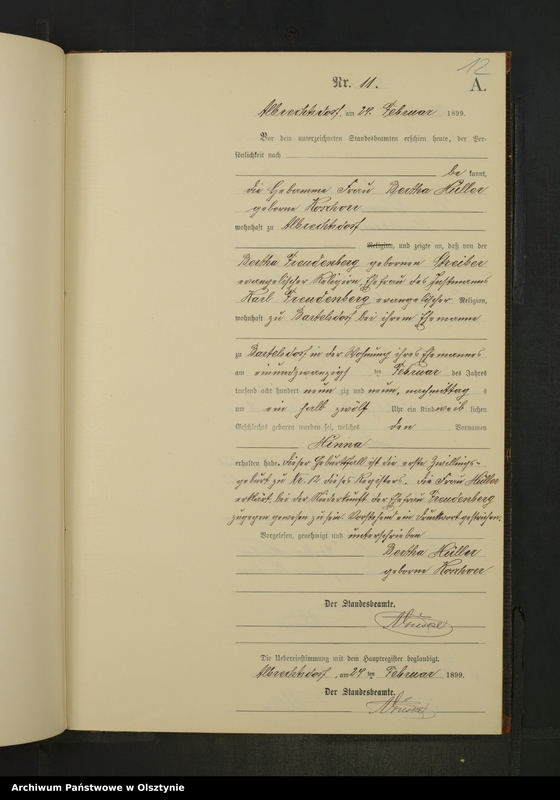 12
Nr. 11.
A.
Albrechtsdorf, am 24. Februar 1899.
Vor dem unterzeichneten Standesbeamten erschien heute, der Per-
sönlichkeit nach
be kannt,
die Hebamme Frau Bertha Müller
geborne Koschorr
wohnhaft zu Albrechtsdorf
Religion, und zeigte an, daß von der
Bertha Freudenberg gebornen Streiber
evangelischer Religion, Ehefrau des Instmanns
Karl Freudenberg evangelischer Religion,
wohnhaft zu Bartelsdorf bei ihrem Ehemanne
zu Bartelsdorf in der Wohnung ihres Ehemannes
am einundzwanzigsten Februar des Jahres
tausend acht hundert neun zig und neun, nachmittag s
um ein halb zwölf Uhr ein Kind weib lichen
Geschlechts geboren worden sei, welches den Vornamen
Minna
erhalten habe. Dieser Geburtsfall ist die erste Zwillings-
geburt zu Nr. 12 dieses Registers. Die Frau Müller
erklärt, bei der Niederkunft der Ehefrau Freudenberg
zugegen gewesen zu sein. Vorstehend ein Druckwort gestrichen.
Vorgelesen, genehmigt und unterschrieben
Bertha Müller
geborne Koschorr
Der Standesbeamte.
Die Uebereinstimmung mit dem Hauptregister beglaubigt.
Albrechtsdorf, am 24 ten Februar 1899.
Der Standesbeamte.
Archiwum Państwowe w Olsztynie